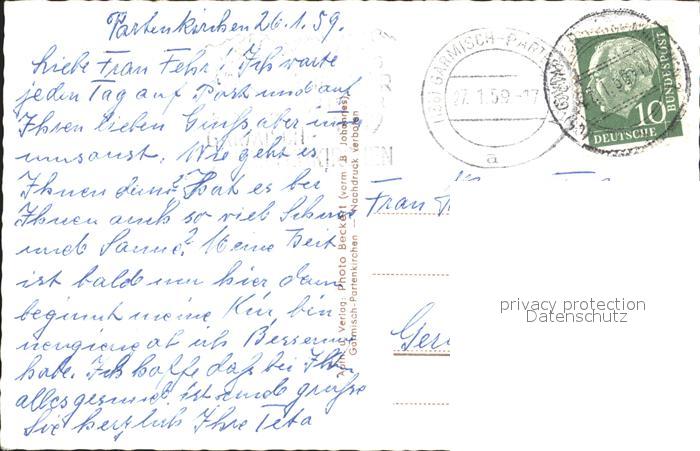 Partenkirchen 26.1.59.
Liebe Frau Fehr! Ich warte
jeden Tag auf Post und auf
Ihren lieben Gruß, aber um-
umsonst. Wie geht es
Ihnen denn? Hat es bei
Ihnen auch so viel Schnee
und Sonne? Meine Zeit
ist bald um hier dann
beginnt meine Kur, bin
neugierig ob ich Besserung
habe. Ich hoffe daß bei Ihnen
alles gesund ist und grüße
Sie herzlich Ihre Teta
Photo Beckert (vorm. B. Johannes)
Garmisch-Partenkirchen — Nachdruck verboten
GARMISCH-PARTE
27.1.59-17
a
10
DEUTSCHE
BUNDESPOST
Frau
Ger
privacy protection
Datenschutz